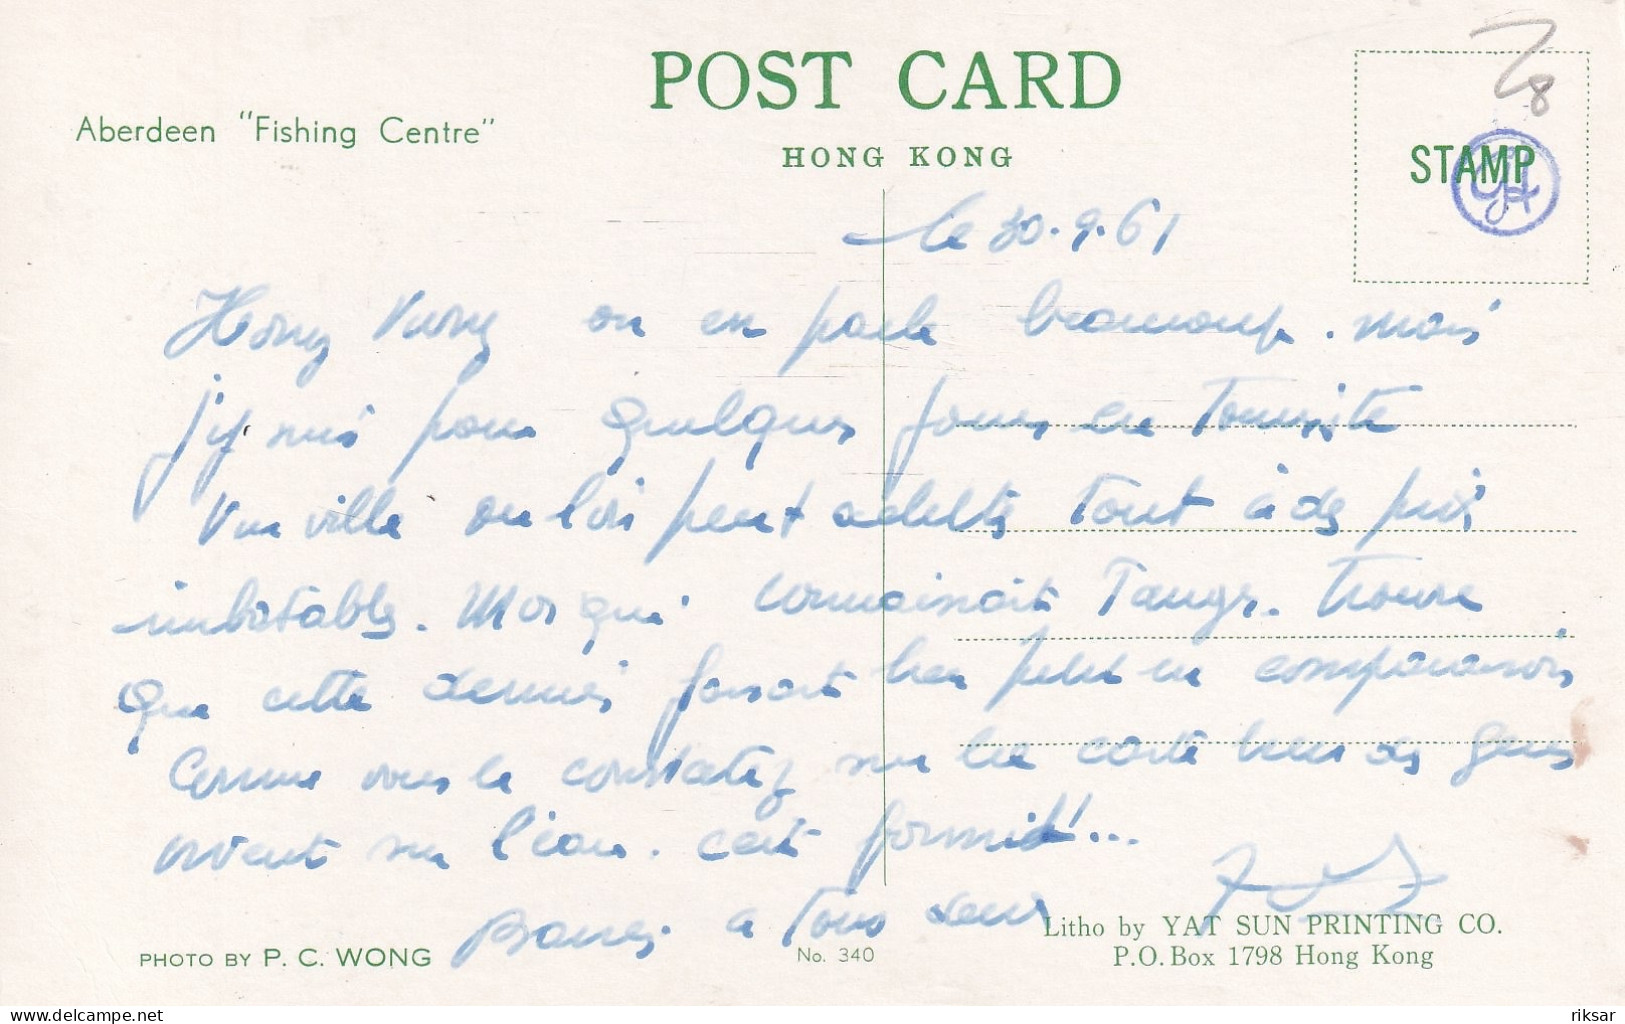 POST CARD
HONG KONG
Aberdeen "Fishing Centre"
STAMP
8
le 30.9.61
Hong Kong on en parle beaucoup. mais
j'y suis pour quelques jours en Touriste
Une ville où l'on peut acheter Tout à des prix
imbatables. Moi qui connaissait Tanger. Trouve
que cette dernière faisait bien petite en comparaison
Comme vous le constatez sur la carte bien des gens
vivent sur l'eau. c'est formid!...
Baisers à Tous deux
PHOTO BY P. C. WONG
No. 340
Litho by YAT SUN PRINTING CO.
P.O. Box 1798 Hong Kong
delcampe.net
riksar